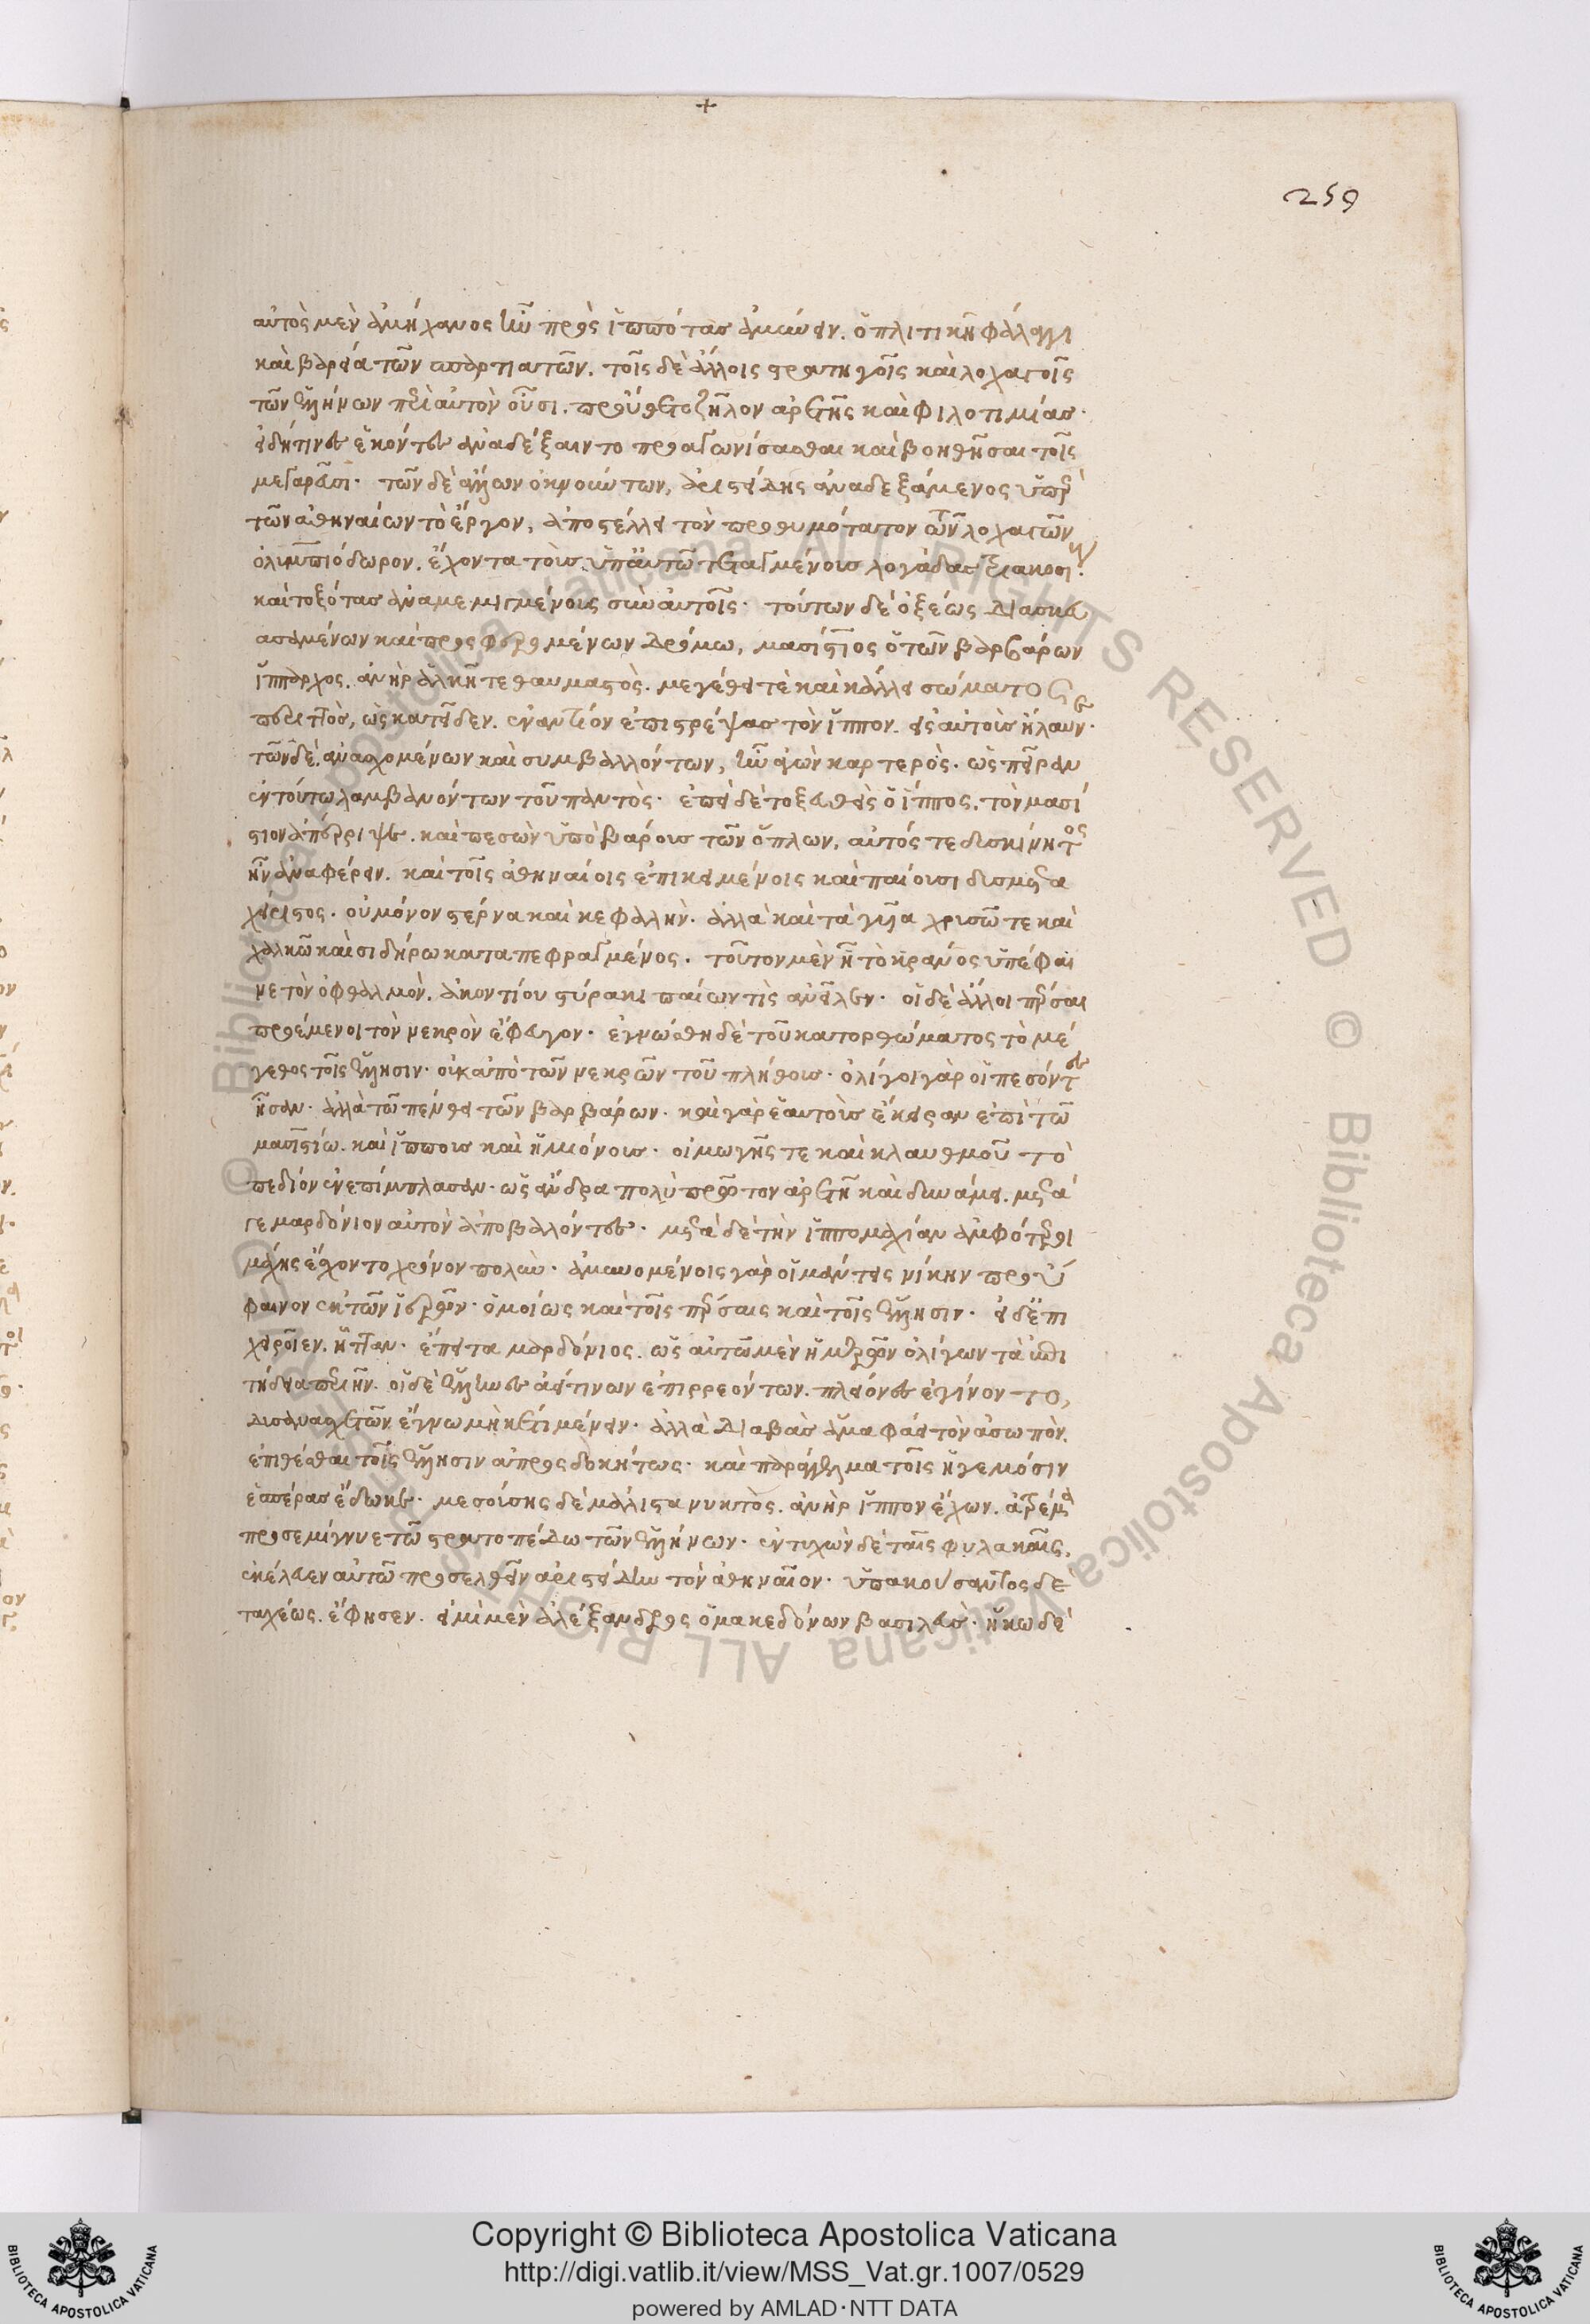 259
αὐτὸς μὲν ἀμήχανος ἦν πρὸς ἱππότας ἀμύνειν. ὁπλιτικῆ φάλαγγι
καὶ βαρεία τῶν σπαρτιατῶν. τοῖς δὲ ἄλλοις στρατηγοῖς καὶ λοχαγοῖς
τῶν ἑλλήνων περὶ αὐτὸν οὖσι. προύθετο ζῆλον ἀρετῆς καὶ φιλοτιμίας.
εἰ δή τινες ἑκόντες ἀναδέξαιντο προαγωνίσασθαι καὶ βοηθῆσαι τοῖς
μεγαρεῦσι. τῶν δὲ ἄλλων ὀκνούντων, ἀριστείδης ἀναδεξάμενος ὑπὲρ
τῶν ἀθηναίων τὸ ἔργον, ἀποστέλλει τὸν προθυμότατον τῶν λοχαγῶν
ὀλυμπιόδωρον. ἔχοντα τοὺς ὑπ' αὐτῶ τεταγμένους λογάδας τριακοσίους.
καὶ τοξότας ἀναμεμιγμένους σὺν αὐτοῖς. τούτων δὲ ὀξέως διασκευ
ασαμένων καὶ προσφερομένων δρόμω, μασίστιος ὁ τῶν βαρβάρων
ἵππαρχος. ἀνὴρ ἀλκῆ τε θαυμαστὸς. μεγέθει τὲ καὶ κάλλει σώματος
περιττὸς, ὡς κατεῖδεν. ἐναντίον ἐπιστρέψας τὸν ἵππον. εἰς αὐτοὺς ἤλαυνε.
τῶν δὲ ἀνασχομένων καὶ συμβαλλόντων, ἦν ἀγὼν καρτερὸς. ὡς πεῖραν
ἐν τούτω λαμβανόντων τοῦ παντὸς. ἐπεὶ δὲ τοξευθεὶς ὁ ἵππος. τὸν μασί
στιον ἀπέρριψε. καὶ πεσὼν ὑπὸ βάρους τῶν ὅπλων, αὐτός τε δυσκίνητος
ἦν ἀναφέρειν. καὶ τοῖς ἀθηναίοις ἐπικειμένοις καὶ παίουσι δυσμετα
χείριστος. οὐ μόνον στέρνα καὶ κεφαλὴν. ἀλλὰ καὶ τὰ γυῖα χρυσῶ τε καὶ
χαλκῶ καὶ σιδήρω καταπεφραγμένος. τοῦτον μὲν ἧ τὸ κράνος ὑπέφαι
νε τὸν ὀφθαλμὸν. ἀκοντίου στύρακι παίων τὶς ἀνεῖλεν. οἱ δὲ ἄλλοι πέρσαι
προέμενοι τὸν νεκρὸν ἔφευγον. ἐγνώσθη δὲ τοῦ κατορθώματος τὸ μέ
γεθος τοῖς ἕλλησιν. οὐκ ἀπὸ τῶν νεκρῶν τοῦ πλήθους. ὀλίγοι γὰρ οἱ πεσόντες
ἦσαν. ἀλλὰ τῶ πένθει τῶν βαρβάρων. καὶ γὰρ ἑαυτοὺς ἔκειραν ἐπὶ τῶ
μασιστίω. καὶ ἵππους καὶ ἡμιόνους. οἰμωγῆς τε καὶ κλαυθμοῦ τὸ
πεδίον ἐνεπίμπλασαν. ὡς ἄνδρα πολὺ πρῶτον ἀρετῆ καὶ δυνάμει. μετά
γε μαρδόνιον αὐτὸν ἀποβαλλόντες. μετὰ δὲ τὴν ἱππομαχίαν ἀμφότεροι
μάχης ἔσχοντο χρόνον πολὺν. ἀμυνομένοις γὰρ οἱ μάντεις νίκην πρού
φαινον ἐκ τῶν ἱερῶν. ὁμοίως καὶ τοῖς πέρσαις καὶ τοῖς ἕλλησιν. εἰ δ' ἐπι
χειροῖεν. ἧτταν. ἔπειτα μαρδόνιος. ὡς αὐτῶ μὲν ἡμερῶν ὀλίγων τὰ ἐπι
τήδεια περιῆν. οἱ δὲ ἕλληνες ἀεί τινων ἐπιρρεόντων. πλείονες ἐγίνοντο,
δυσανασχετῶν ἔγνω μηκέτι μένειν. ἀλλὰ διαβὰς ἅμα φάει τὸν ἀσωπὸν.
ἐπιθέσθαι τοῖς ἕλλησιν ἀπροσδοκήτως. καὶ παράγγελμα τοῖς ἡγεμόσιν
ἑσπέρας ἔδωκε. μεσούσης δὲ μάλιστα νυκτὸς. ἀνὴρ ἵππον ἔχων. ἀτρέμα
προσεμίγνυε τῶ στρατοπέδω τῶν ἑλλήνων. ἐντυχὼν δὲ ταῖς φυλακαῖς,
ἐκέλευεν αὐτῶ προσελθεῖν ἀριστείδην τὸν ἀθηναῖον. ὑπακούσαντος δὲ
ταχέως. ἔφησεν. εἰμὶ μὲν ἀλέξανδρος ὁ μακεδόνων βασιλεὺς. ἥκω δὲ
Copyright © Biblioteca Apostolica Vaticana
http://digi.vatlib.it/view/MSS_Vat.gr.1007/0529
powered by AMLAD·NTT DATA